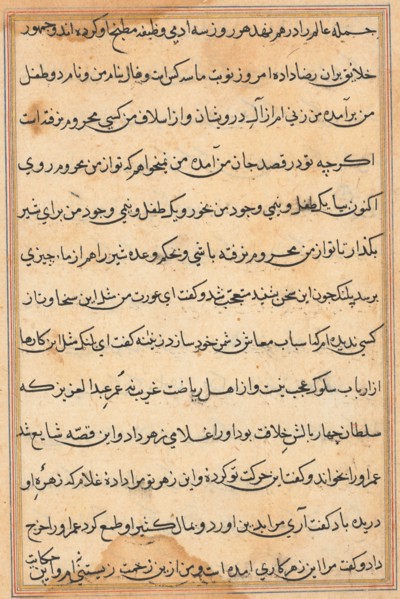 جمله عالم را در هم نهند هر روز سه ادمی وظیفه مطبخ او کرده اند و جمهور
خلایق بران رضا داده امروز نوبت ما سه کس است و فال بنام من و نام دو طفل
من برآمده من زنی ام از آل درویشان و از اسلاف من کسی محروم نرفته است
اکرچه تو در قصد جان من آمده من نمیخواهم که تو از من محروم روی
اکنون بیا یک طفل و نیمی وجود من بخور و یک طفل و نیمی وجود من برای شیر
بگذار تا تو از من محروم نرفته باشی و بحکم وعده شیر را هم از ما چیزی
برسد پلنک چون این سخن بشنید متعجب شد و گفت ای عورت من مثل این سخاوت از
کسی ندیده ام که اسباب معاش دشمن خود سازد زن گفت ای پلنک مثل این کارها
از ارباب سلوک عجب نیست و از اهل ریاضت غریب نه عمر عبد العزیز که
سلطان چهار بالش خلافت بود او را غلامی زهر داد و این قصه شایع شد
عمر او را بخواند و گفت این حرکت تو کردهٔ و این زهر تو مرا دادهٔ غلام که زهرهٔ او
دریده باد گفت آری مرا بدین اورد و بمال کثیر او طمع کرد عمر او را خرج
داد و گفت مرا این زهر کاری امده است و من ازین زحمت زیستنی نه ام و این حکایت